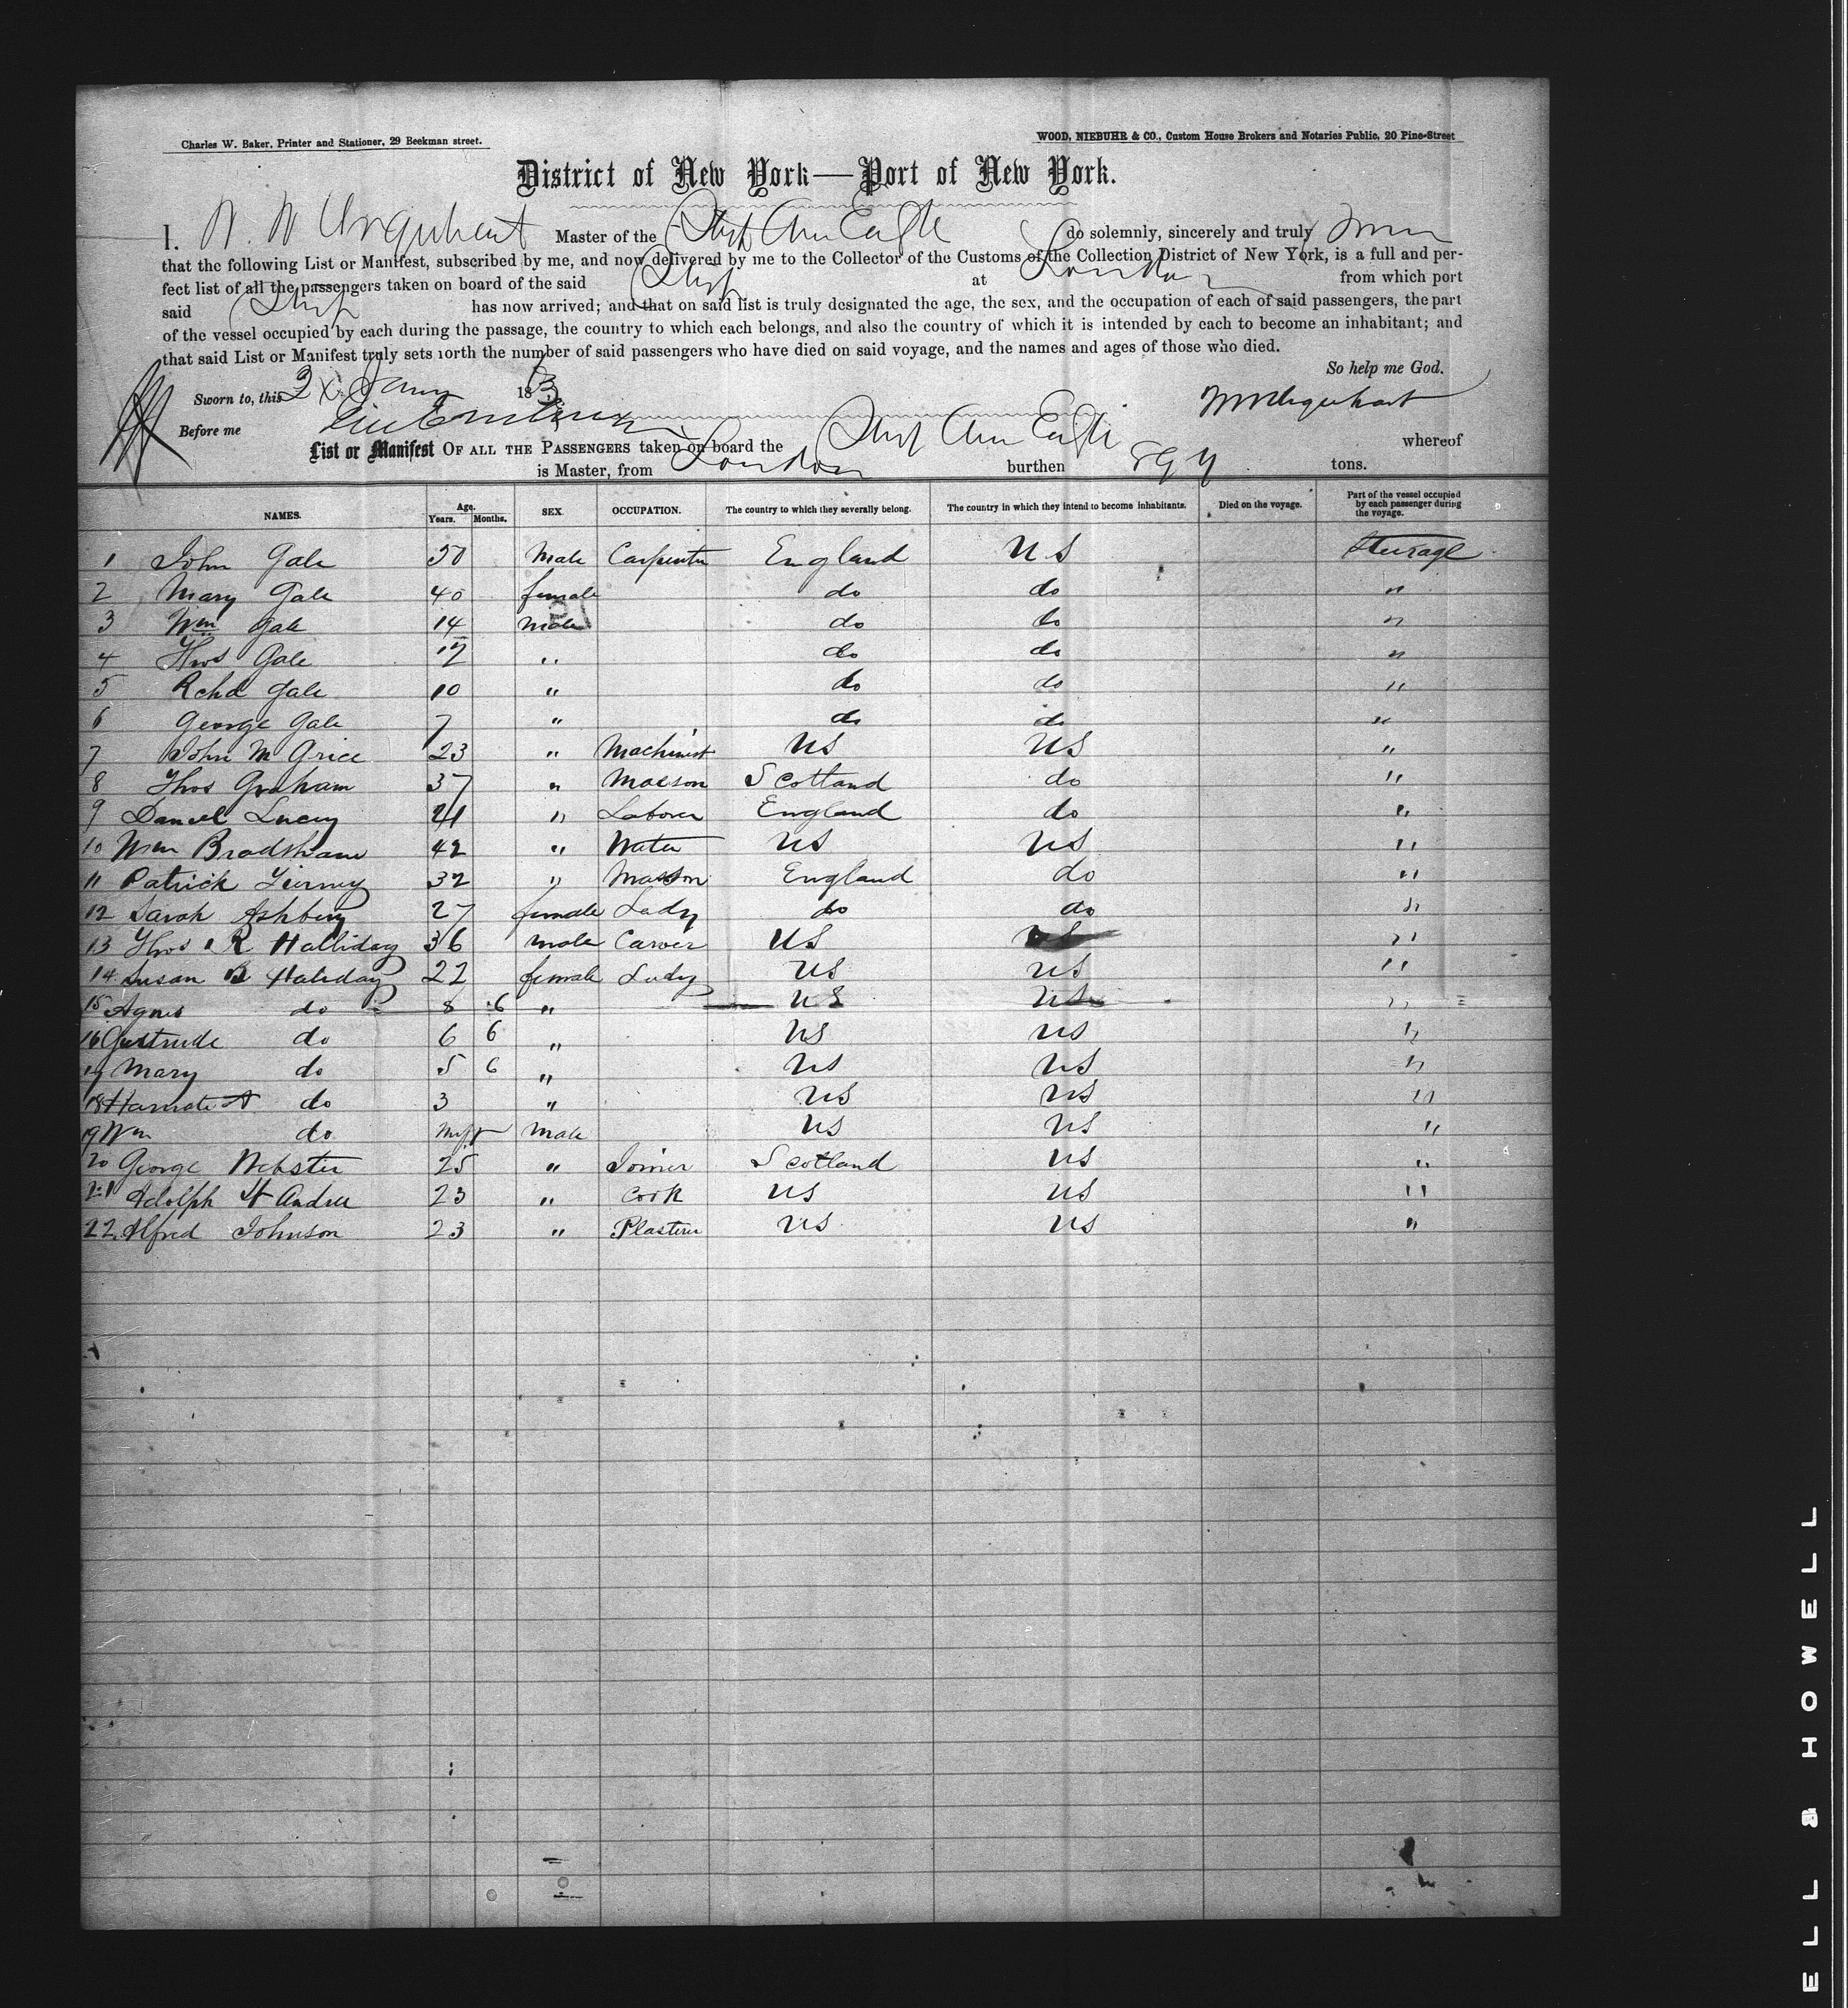 Charles W. Baker, Printer and Stationer, 29 Beekman street.
WOOD, NIEBUHR & CO., Custom House Brokers and Notaries Public, 20 Pine-Street
District of New York—Port of New York.
I. W. W Urquhart Master of the Ship Am Eagle do solemnly, sincerely and truly swear
that the following List or Manifest, subscribed by me, and now delivered by me to the Collector of the Customs of the Collection District of New York, is a full and per-
fect list of all the passengers taken on board of the said Ship at London from which port
said Ship has now arrived; and that on said list is truly designated the age, the sex, and the occupation of each of said passengers, the part
of the vessel occupied by each during the passage, the country to which each belongs, and also the country of which it is intended by each to become an inhabitant; and
that said List or Manifest truly sets forth the number of said passengers who have died on said voyage, and the names and ages of those who died.
So help me God.
Sworn to, this Jany 186
W W Urquhart
Before me
List or Manifest OF ALL THE PASSENGERS taken on board the Ship Am Eagle whereof
is Master, from London burthen tons.
NAMES. Age. Years. Months. SEX. OCCUPATION. The country to which they severally belong. The country in which they intend to become inhabitants. Died on the voyage. Part of the vessel occupied by each passenger during the voyage.
1 John Gale 50 Male Carpenter England US Steerage
2 Mary Gale 40 female do do "
3 Wm Gale 14 male do do "
4 Thos Gale 12 " do do "
5 Rchd Gale 10 " do do "
6 George Gale 7 " do do "
7 John McGrice 23 " Machinist US US "
8 Thos Graham 37 " Masson Scotland do "
9 Daniel Lucey 21 " Laborer England do "
10 Wm Bradshaw 42 " Waiter US US "
11 Patrick Tierney 32 " Masson England do "
12 Sarah Ashbury 27 female Lady do do "
13 Thos R Halliday 36 male Carver US US "
14 Susan B Haliday 22 female Lady US US "
15 Agnes do 8 6 " US US "
16 Gertrude do 6 6 " US US "
17 Mary do 5 6 " US US "
18 do 3 " US US "
19 Wm do Inft male US US "
20 George Webster 25 " Joiner Scotland US "
21 Adolph St Andre 23 " Cook US US "
22 Alfred Johnson 23 " Plasterer US US "
ELL & HOWELL